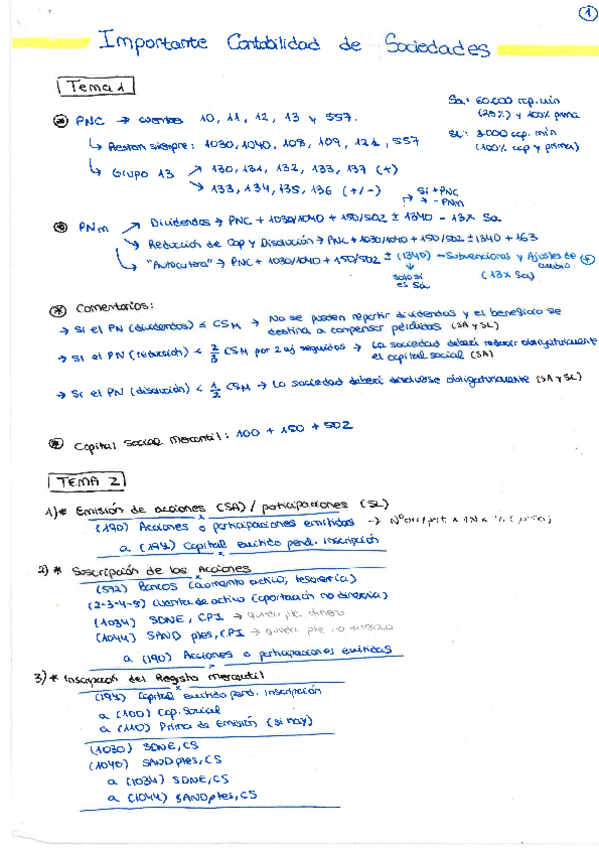 1
Importante Contabilidad de Sociedades
Tema 1
Sa: 60.000 cap. min
(25%) y 100% prima
SL: 3.000 cap. min
(100% cap y prima)
* PNC → cuentas 10, 11, 12, 13 y 557.
↳ Restan siempre: 1030, 1040, 108, 109, 121, 557
↳ Grupo 13 → 130, 131, 132, 133, 137 (+)
→ 133, 134, 135, 136 (+/-) → Si + PNC
→ - PNm
* PNm → Dividendos → PNC + 1030/1040 + 150/502 ± 1340 - 13X Sa
↳ Reducción de Cap y Disolución → PNC + 1030/1040 + 150/502 ± 1340 + 163
↳ "Autocartera" → PNC + 1030/1040 + 150/502 ± (1340) - Subvenciones y Ajustes de cambio +
solo si es Sa
(13X Sa)
* Comentarios:
→ Si el PN (dividendos) ≤ CSM → No se pueden repartir dividendos y el beneficio se
destina a compensar pérdidas (SA y SL)
→ Si el PN (reducción) < 2/3 CSM por 2 aj seguidos → La sociedad deberá reducir obligatoriamente
el capital social (SA)
→ Si el PN (disolución) < 1/2 CSM → La sociedad deberá disolverse obligatoriamente (SA y SL)
* Capital Social Mercantil: 100 + 150 + 502
TEMA 2
1) * Emisión de acciones (SA) / participaciones (SL)
(190) Acciones o participaciones emitidas →
a (194) Capital emitido pend. inscripción
2) * Suscripción de las Acciones
(572) Bancos (aumento activo, tesorería)
(2-3-4-5) Cuenta de activo (aportación no dineraria)
(1034) SDNE, CPI →
(1044) SAND ptes, CPI →
a (190) Acciones o participaciones emitidas
3) * Inscripción del Registro mercantil
(194) Capital emitido pend. inscripción
a (100) Cap. Social
a (110) Prima de Emisión (si hay)
(1030) SDNE, CS
(1040) SAND ptes, CS
a (1034) SDNE, CS
a (1044) SAND ptes, CS